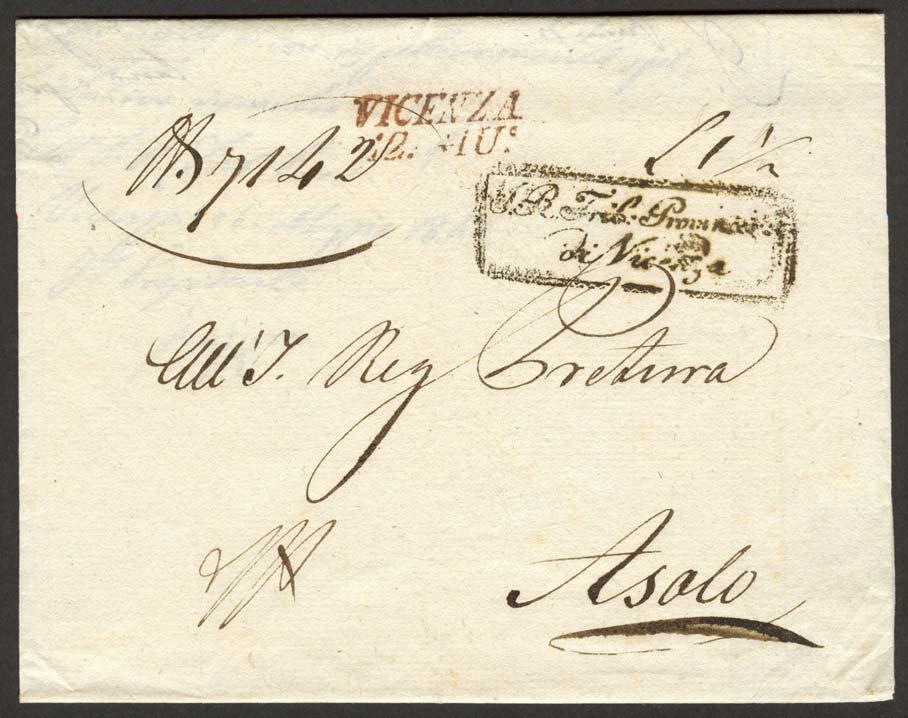 VICENZA
12. GIU.º
N.º 7142
L 1 ½
I. R. Trib: Provinciale
di Vicenza
All' I. Reg Pretura
Asolo